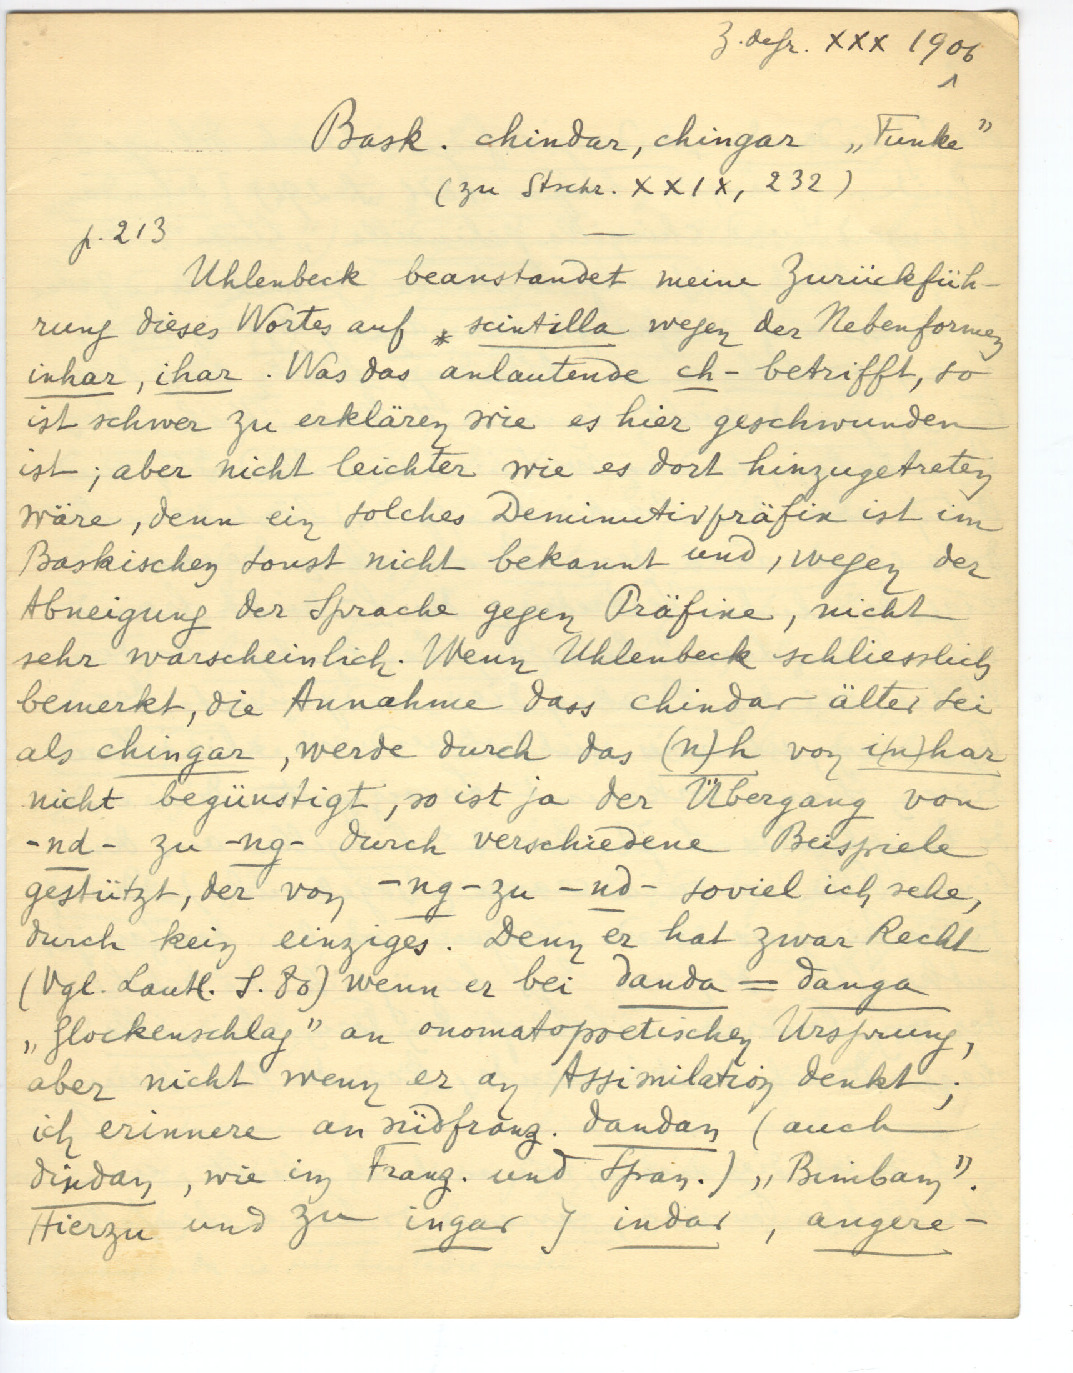 Z. desr. XXX 1906
Bask. chindar, chingar „Funke”
(zu Ztschr. XXIX, 232)
p. 213
Uhlenbeck beanstandet meine Zurückfüh-
rung dieses Wortes auf *scintilla wegen der Nebenformen
inhar, ihar. Was das anlautende ch- betrifft, so
ist schwer zu erklären wie es hier geschwunden
ist; aber nicht leichter wie es dort hinzugetreten
wäre, denn ein solches Deminutivpräfix ist im
Baskischen sonst nicht bekannt und, wegen der
Abneigung der Sprache gegen Präfixe, nicht
sehr warscheinlich. Wenn Uhlenbeck schliesslich
bemerkt, die Annahme dass chindar älter sei
als chingar, werde durch das (n)h von i(n)har
nicht begünstigt, so ist ja der Übergang von
-nd- zu -ng- durch verschiedene Beispiele
gestützt, der von -ng- zu -nd- soviel ich sehe,
durch kein einziges. Denn er hat zwar Recht
(Vgl. Lautl. S. 80) wenn er bei danda = danga
„Glockenschlag” an onomatopoetischen Ursprung,
aber nicht wenn er an Assimilation denkt;
ich erinnere an südfranz. dandan (auch
dindan, wie im Franz. und Span.) „Bimbam”.
Hierzu und zu ingar > indar, angere-